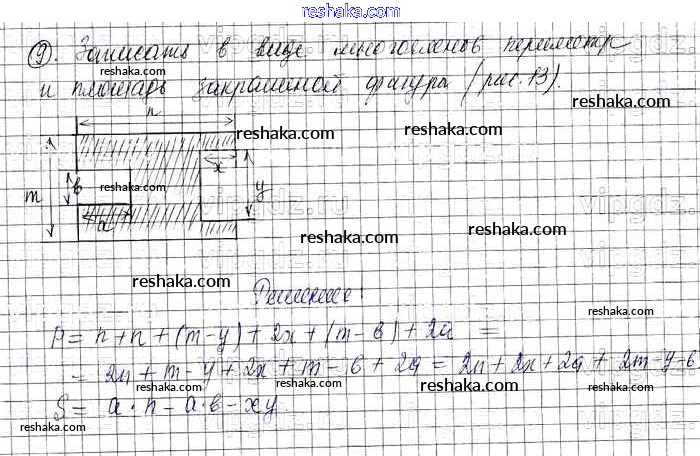 reshaka.com
9. Записать в виде многочленов периметр
и площадь закрашеной фигуры (рис. 13).
n
reshaka.com
reshaka.com
reshaka.com
x
m
в
reshaka.com
y
reshaka.com
a
reshaka.com
reshaka.com
reshaka.com
Решение:
reshaka.com
reshaka.com
P = n + n + (m - y) + 2x + (m - в) + 2a =
= 2n + m - y + 2x + m - в + 2a = 2n + 2x + 2a + 2m - y - в.
reshaka.com
reshaka.com
reshaka.com
reshaka.com
S = a · n - a · в - xy
reshaka.com
reshaka.com
reshaka.com